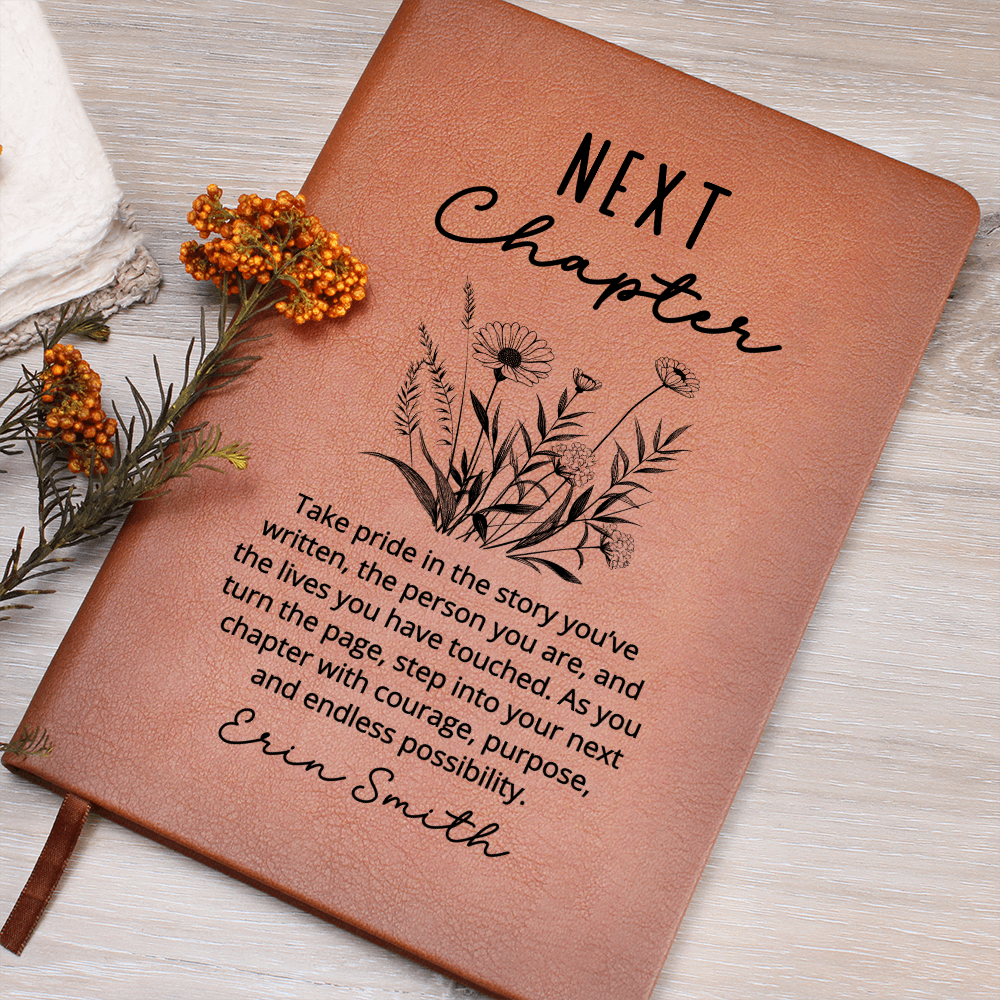 NEXT
Chapter
Take pride in the story you've
written, the person you are, and
the lives you have touched. As you
turn the page, step into your next
chapter with courage, purpose,
and endless possibility.
Erin Smith